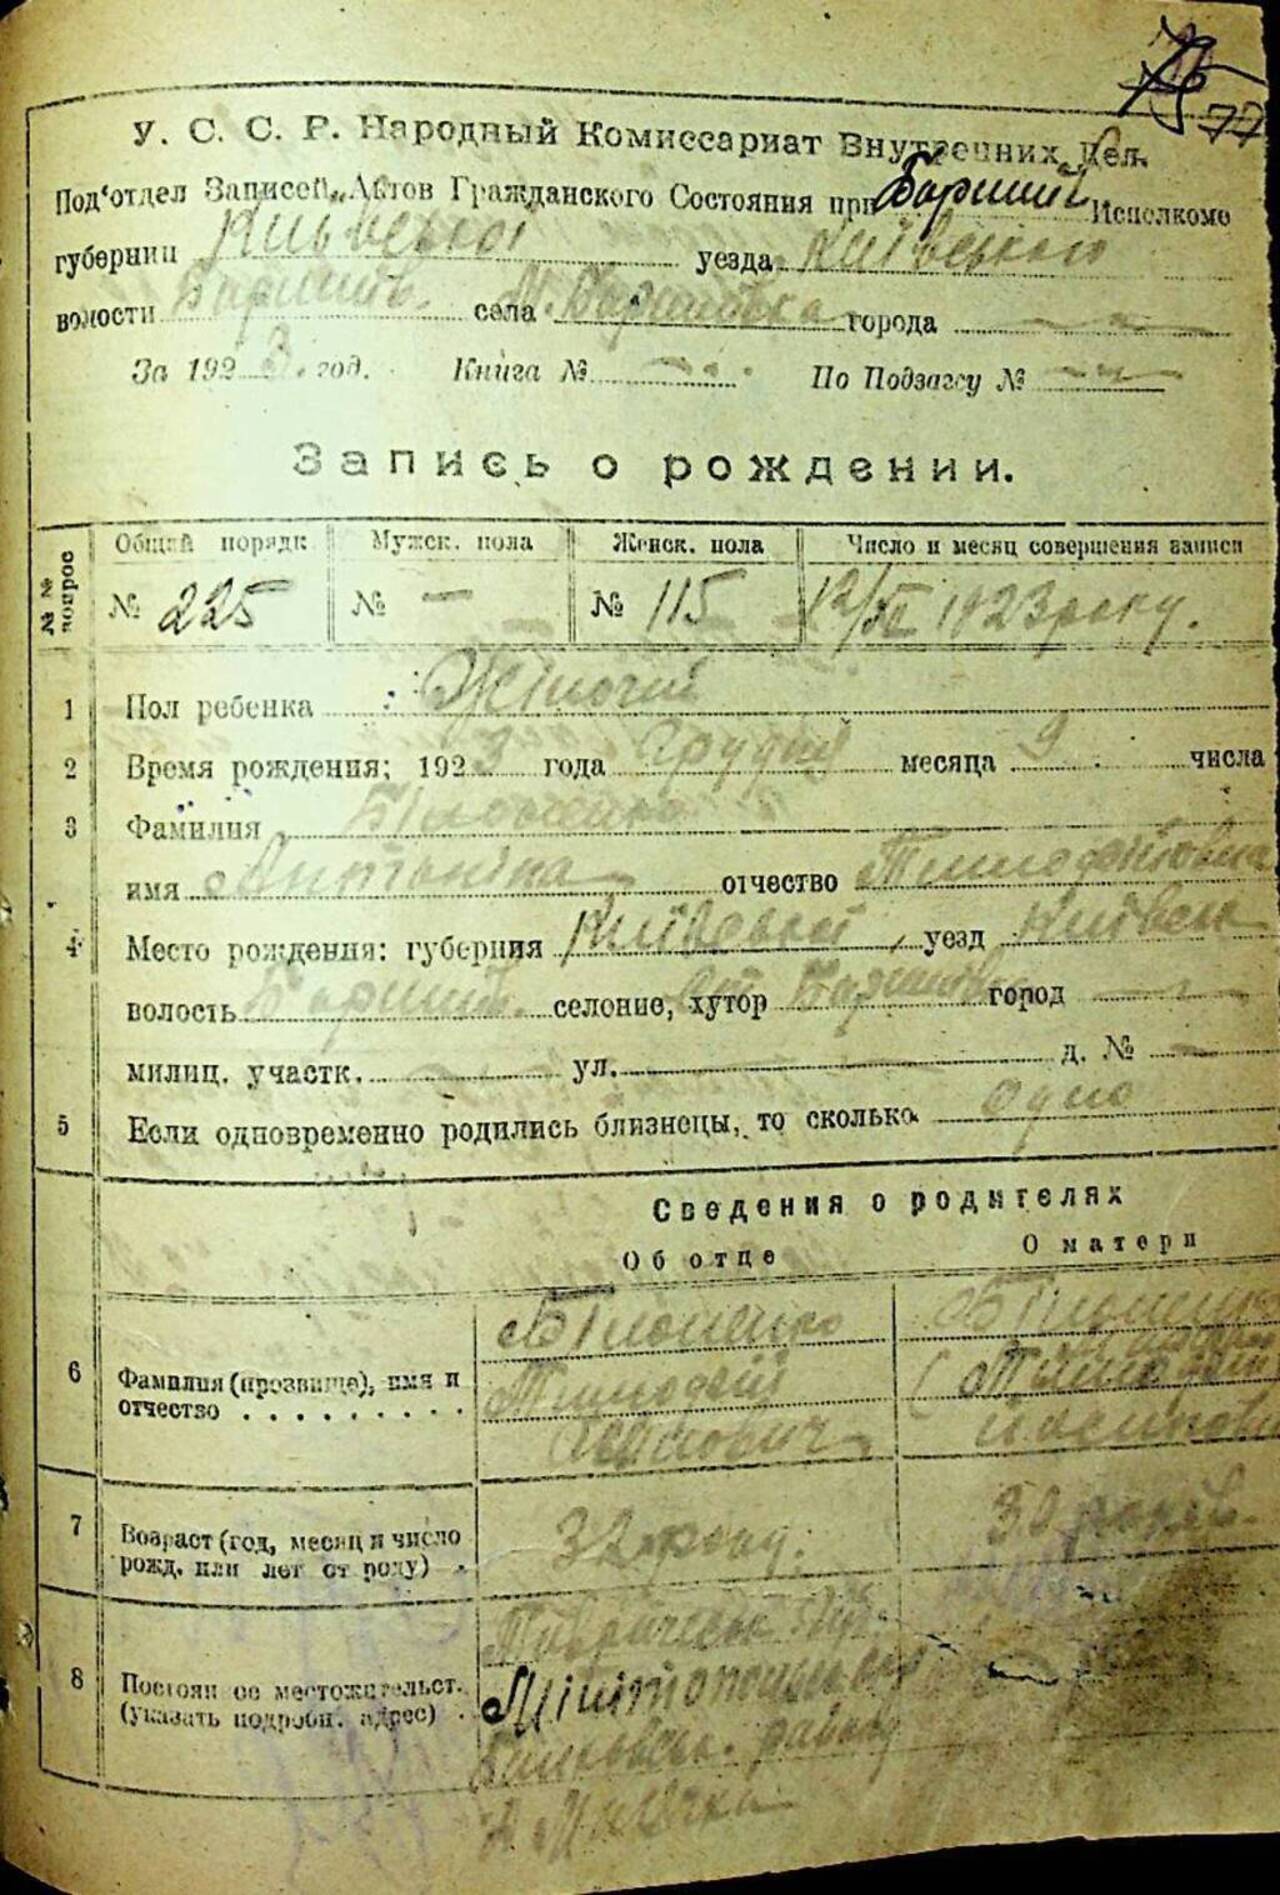 77
У. С. С. Р. Народный Комиссариат Внутренних Дел.
Под‘отдел Записей Актов Гражданского Состояния при Баришів Исполкоме
губернии Київської уезда Київського
волости Баришів. села М. Баришівка города —
За 1923. год. Книга № — По Подзагсу № —
Запись о рождении.
№ № вопрос Общий порядк Мужск. пола Женск. пола Число и месяц совершения записи
№ 225 № — № 115 12/XII 1923 року.
1 Пол ребенка Жіночий
2 Время рождения; 1923 года Грудня месяца 9 числа
3 Фамилия
имя Антоніна отчество Тимофіївна
4 Место рождения: губерния Київській, уезд Київськ
волость Баришів. селение, хутор Баришівка город —
милиц. участк. — ул. — д. № —
5 Если одновременно родились близнецы, то сколько одно
Сведения о родителях
Об отце О матери
6 Фамилия (прозвище), имя и
отчество . . . . . . . . .
Тимофій
7 Возраст (год, месяц и число
рожд. или лет от роду) .
32 року. 30 років.
8 Постоян ое местожительст.
(указать подробн. адрес) .
району